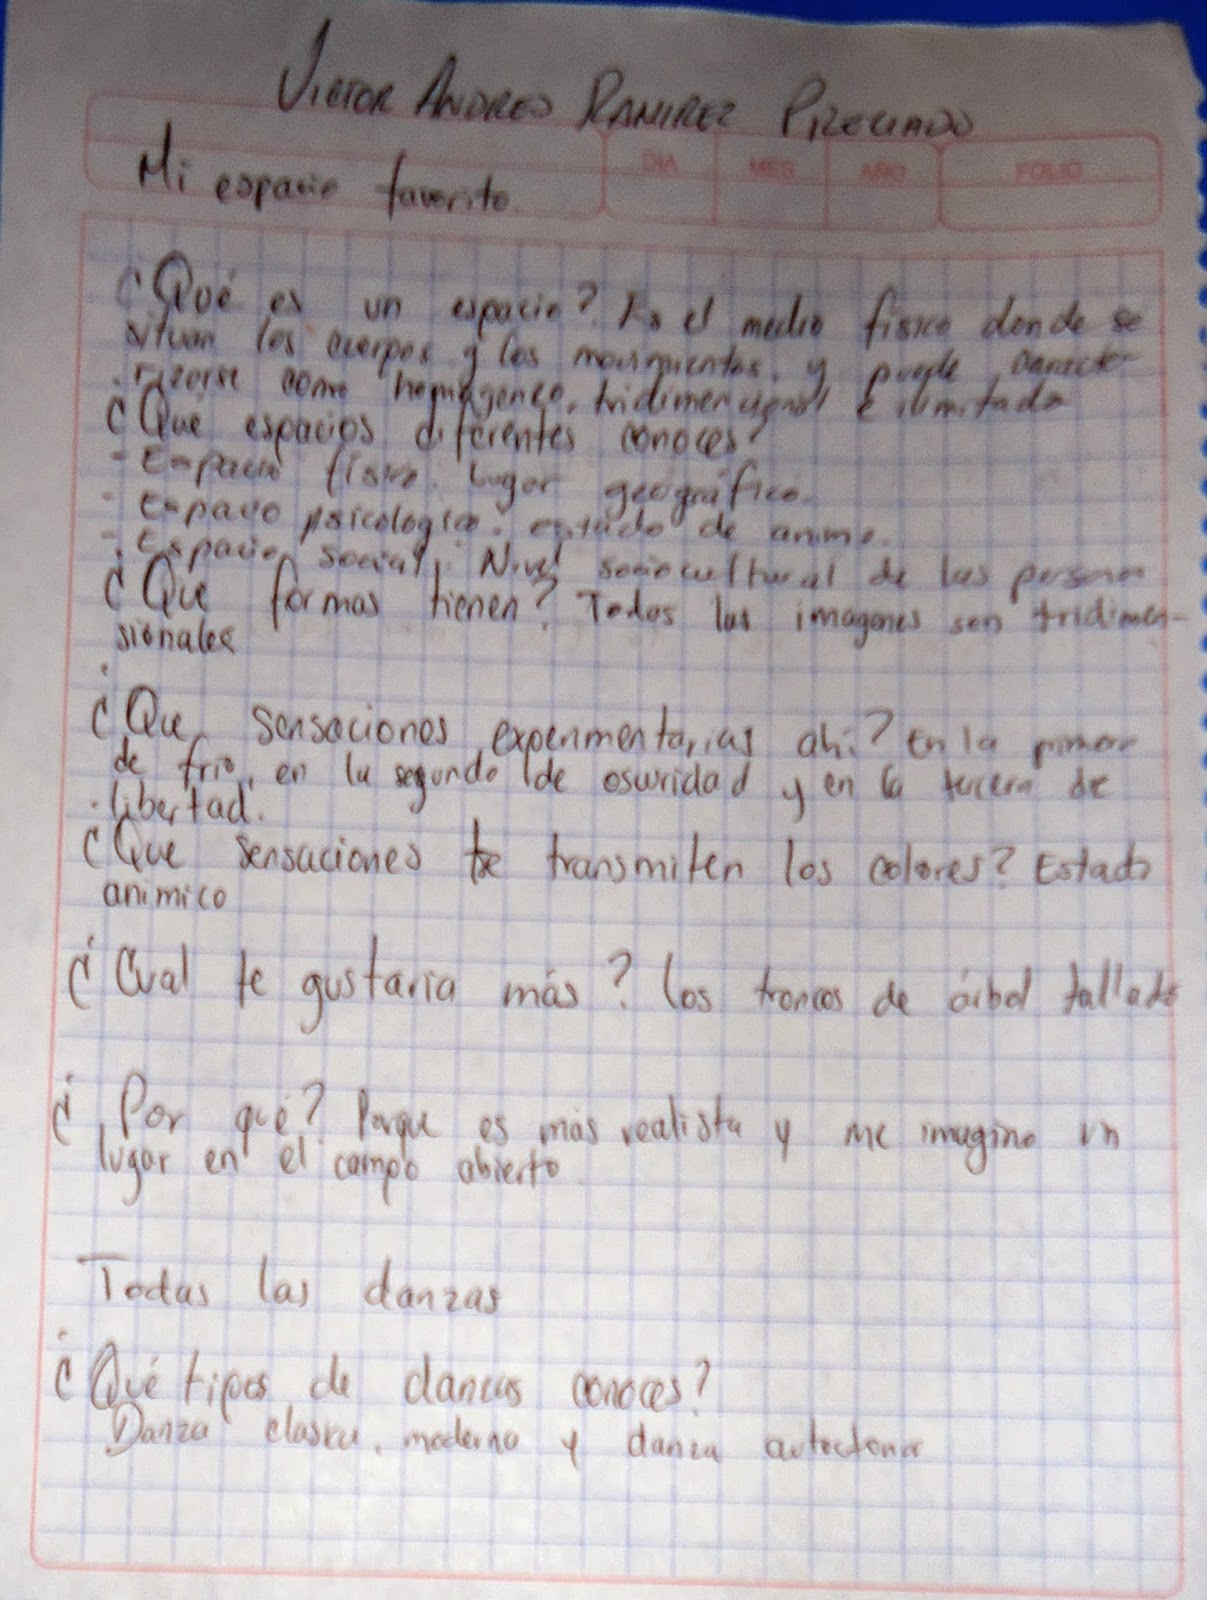 VICTOR ANDRES RAMIREZ
DIA MES AÑO FOLIO
Mi espacio favorito.
¿Qué es un espacio? Es el medio físico donde se
situan los cuerpos y los movimientos, y puede caracte-
rizarse como homogeneo, tridimensional e ilimitado
¿Qué espacios diferentes conoces?
- Espacio físico. Lugar geográfico.
- Espacio psicologico: estado de animo.
- Espacio social: Nivel sociocultural de las persona
¿Que formas tienen? Todos las imagenes son tridimen-
sionales
¿Que sensaciones experimentarias ahi? En la primer
de frio, en la segundo de oscuridad y en la tercera de
libertad.
¿Que sensaciones te transmiten los colores? Estado
animico
¿Cual te gustaria más? Los troncos de árbol tallado
¿Por qué? Porque es más realista y me imagino un
lugar en el campo abierto.
Todas las danzas
¿Qué tipos de danzas conoces?
Danza clasica, moderno y danza autoctona